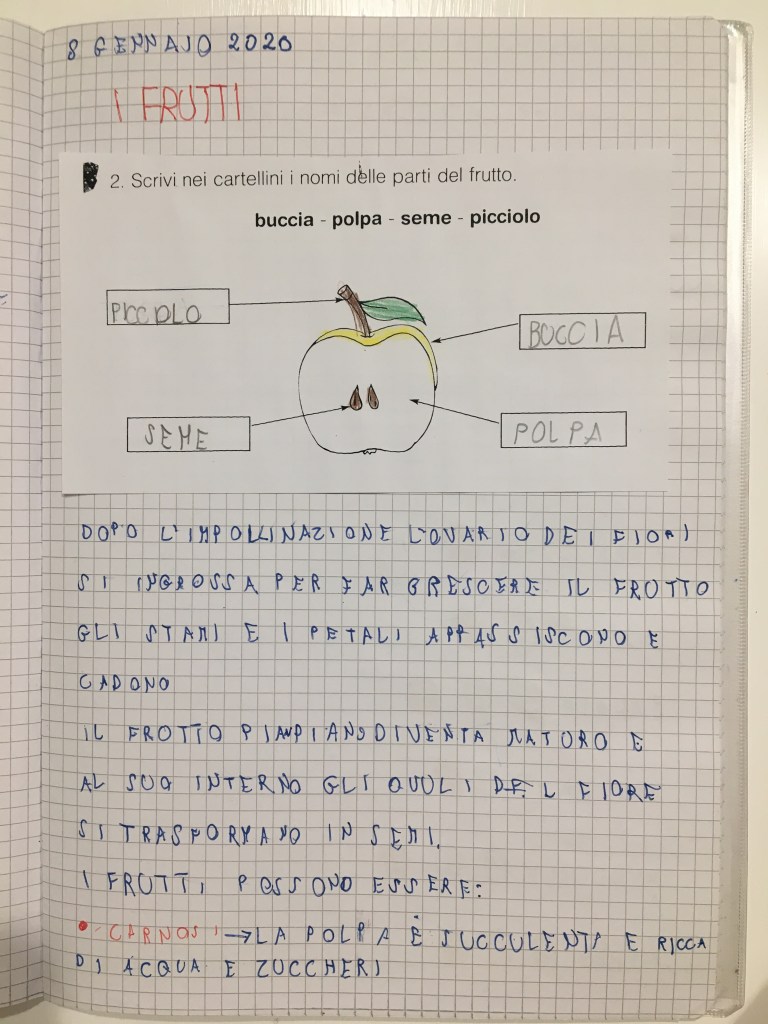 8 GENNAIO 2020
I FRUTTI
2. Scrivi nei cartellini i nomi delle parti del frutto.
buccia - polpa - seme - picciolo
PICCOLO
BUCCIA
SEME
POLPA
DOPO L'IMPOLLINAZIONE L'OVARIO DEI FIORI
SI INGROSSA PER FAR CRESCERE IL FRUTTO
GLI STAMI E I PETALI APPASSISCONO E
CADONO
IL FRUTTO PIANPIANO DIVENTA MATURO E
AL SUO INTERNO GLI OVULI DEL FIORE
SI TRASFORMANO IN SEMI.
I FRUTTI POSSONO ESSERE:
• CARNOSI → LA POLPA È SUCCULENTA E RICCA
DI ACQUA E ZUCCHERI